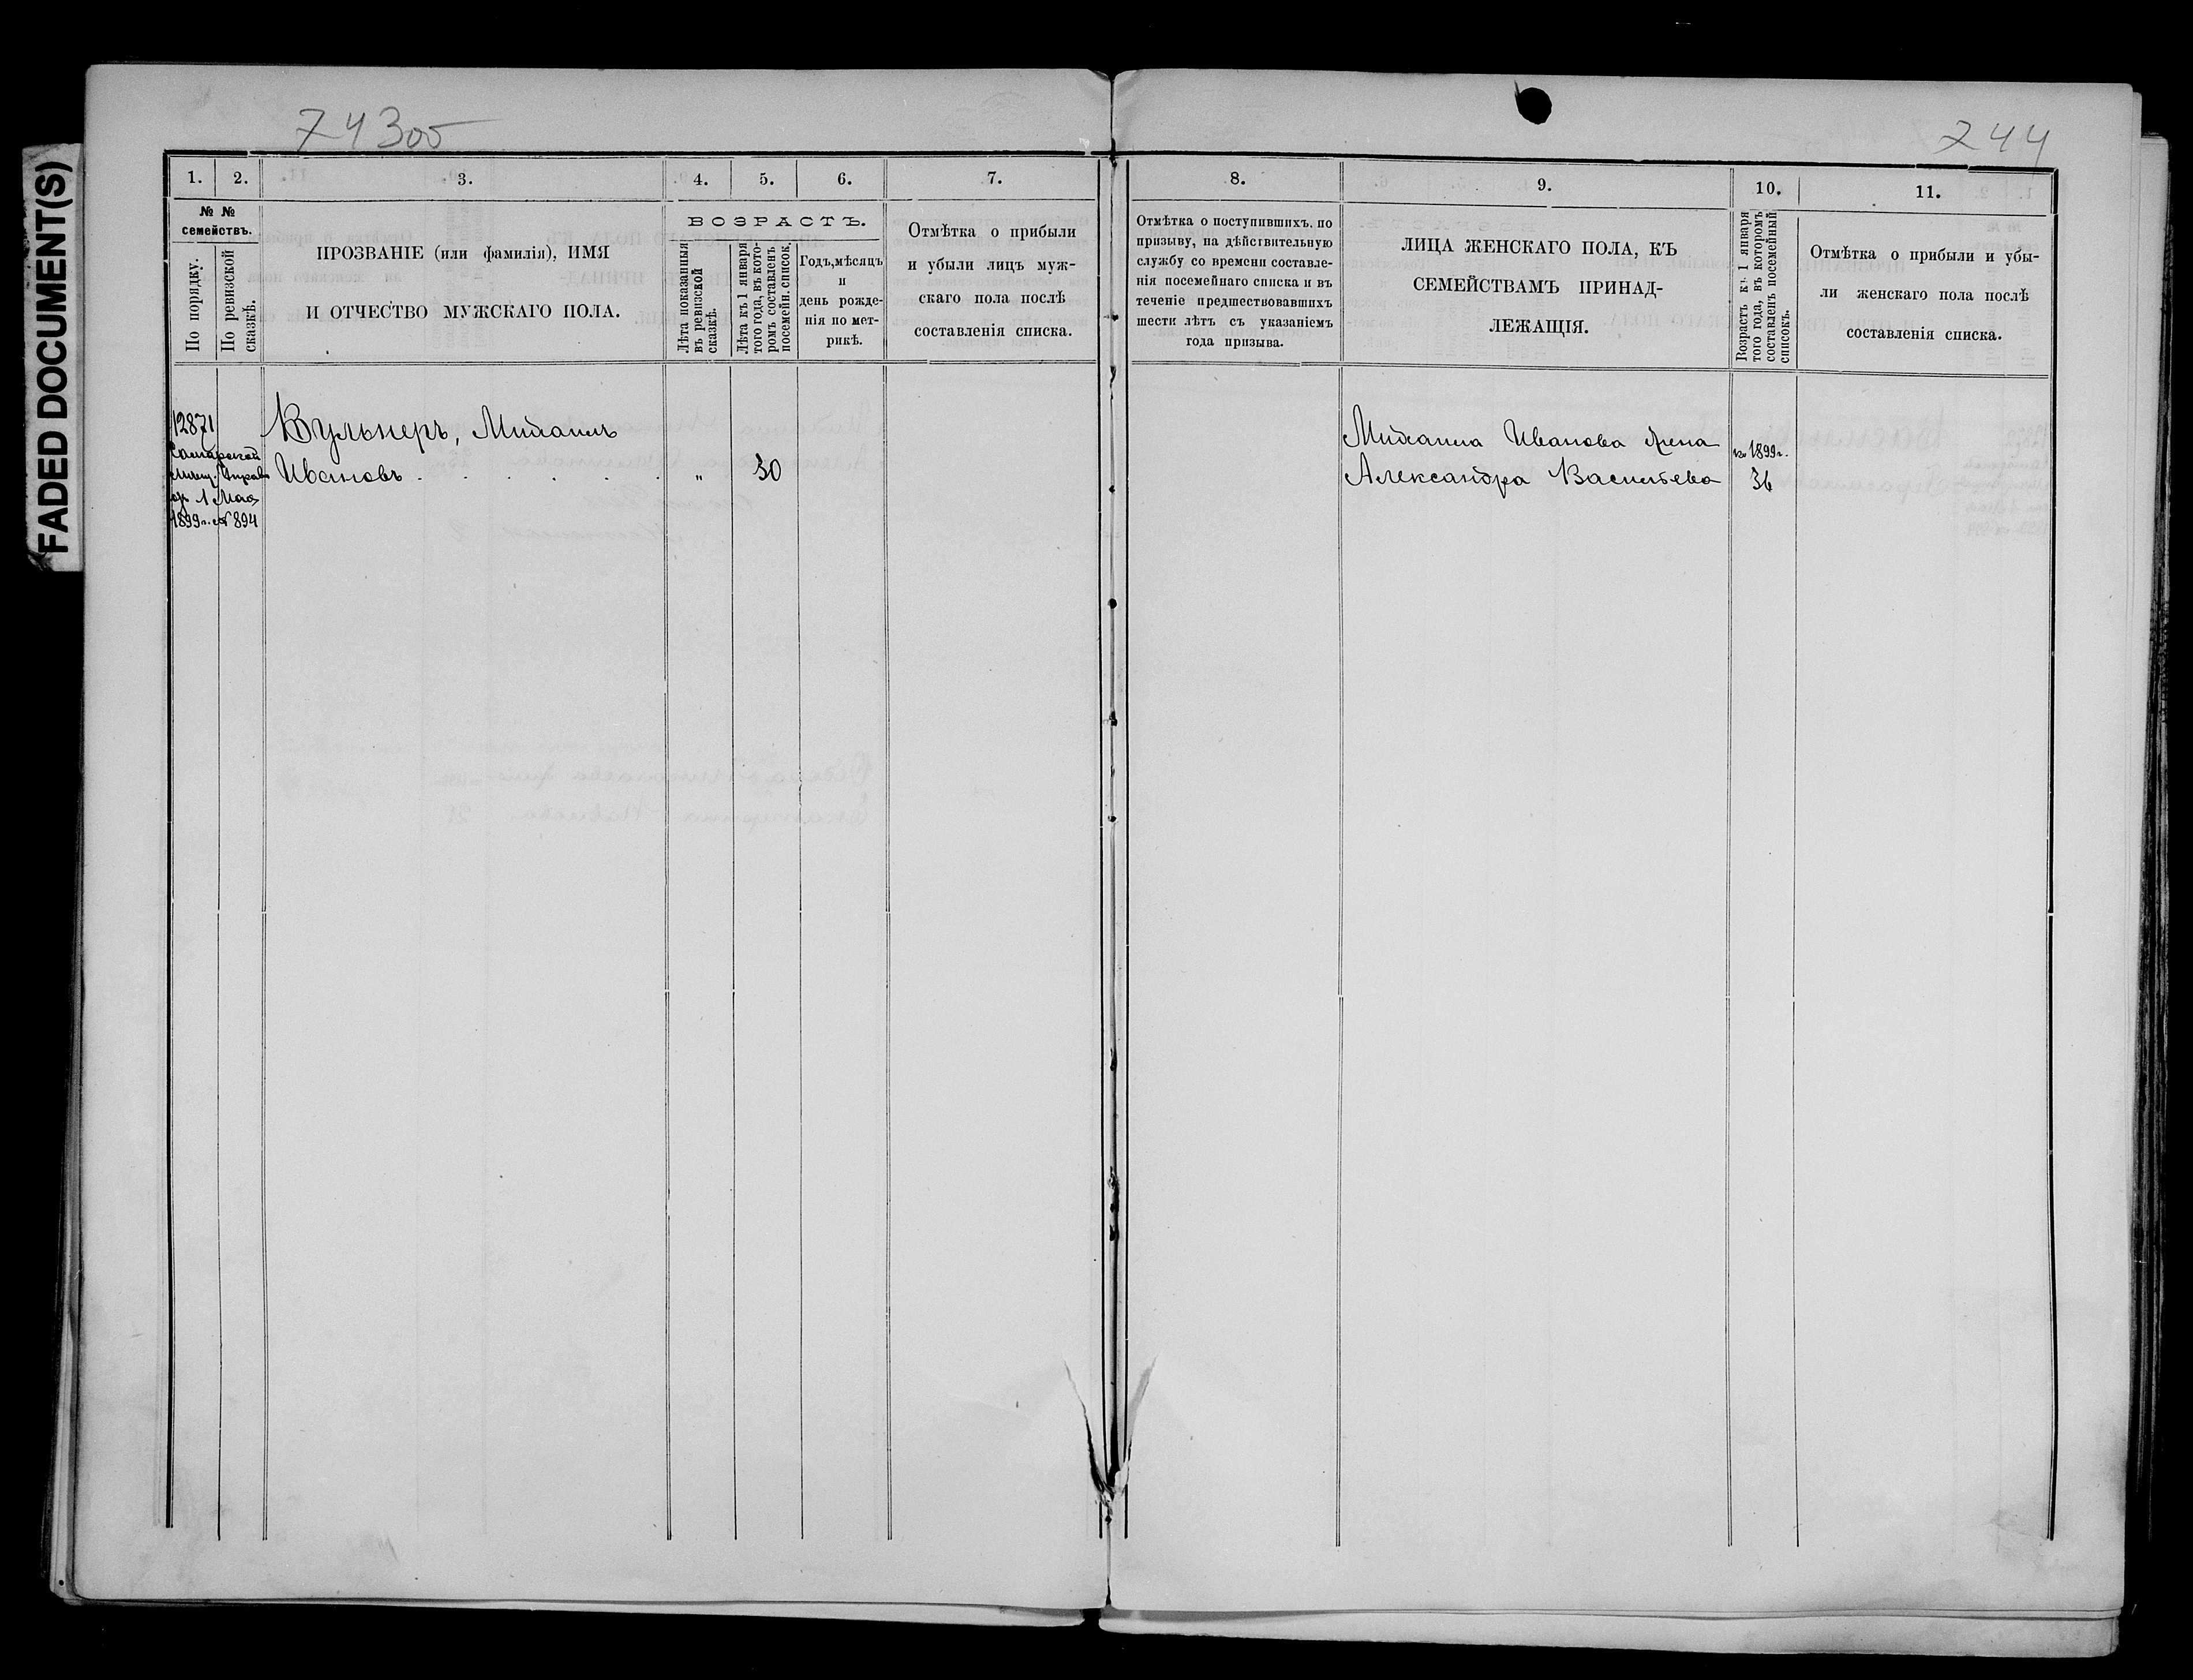 FADED DOCUMENT(S)
74305
244
1. 2. 3. 4. 5. 6. 7.
№ №
семействъ.
По порядку.
По ревизской
сказкѣ.
ПРОЗВАНІЕ (или фамилія), ИМЯ
И ОТЧЕСТВО МУЖСКАГО ПОЛА.
ВОЗРАСТЪ.
Лѣта показанныя
въ ревизской
сказкѣ.
Лѣта къ 1 января
того года, въ кото-
ромъ составленъ
посемейн. список.
Годъ, мѣсяцъ
и
день рожде-
нія по мет-
рикѣ.
Отмѣтка о прибыли
и убыли лицъ муж-
скаго пола послѣ
составленія списка.
8. 9. 10. 11.
Отмѣтка о поступившихъ, по
призыву, на дѣйствительную
службу со времени составле-
нія посемейнаго списка и въ
теченіе предшествовавшихъ
шести лѣтъ съ указаніемъ
года призыва.
ЛИЦА ЖЕНСКАГО ПОЛА, КЪ
СЕМЕЙСТВАМЪ ПРИНАД-
ЛЕЖАЩІЯ.
Возрастъ къ 1 января
того года, въ которомъ
составленъ посемейный
списокъ.
Отмѣтка о прибыли и убы-
ли женскаго пола послѣ
составленія списка.
12871
Самарской
мѣщ. Управы
1 Мая
1899 г. № 894
Вульнеръ, Михаилъ
Ивановъ . . . . . . „ 30
Михаила Иванова жена
Александра Васильева
1899 г.
36